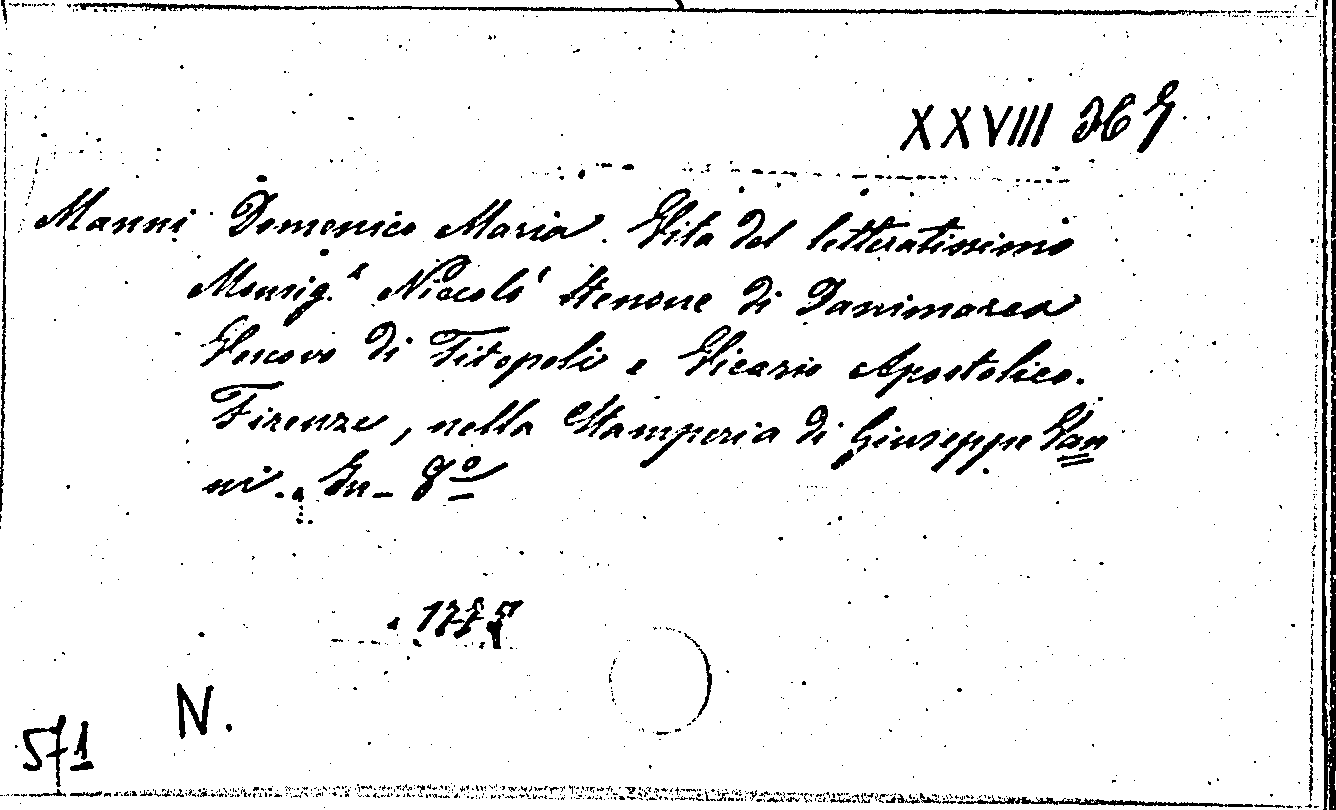 XXVIII 36 G
Manni Domenico Maria. Vita del letteratissimo
Monsig.r Niccolò Stenone di Danimarca
Vescovo di Titopoli e Vicario Apostolico.
Firenze, nella Stamperia di Giuseppe Van
ni. In-8º
1775
N.
571